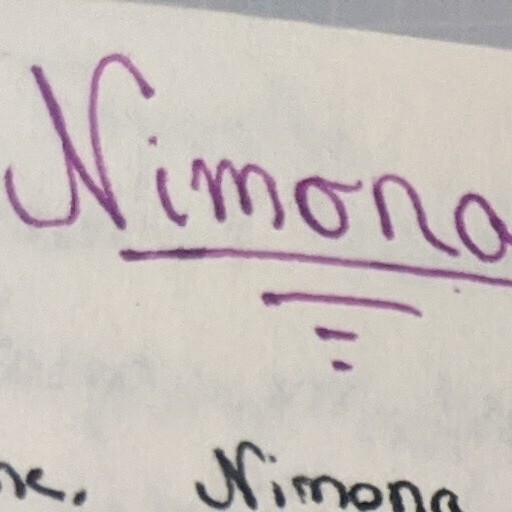 Nimona
Nimona